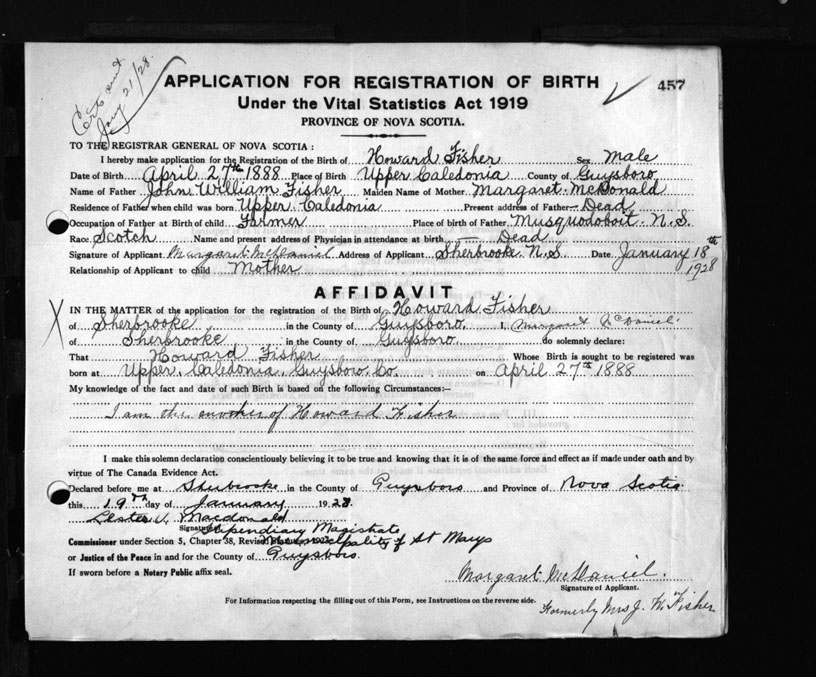 Certs sent
Jany 21/28
APPLICATION FOR REGISTRATION OF BIRTH
457
Under the Vital Statistics Act 1919
PROVINCE OF NOVA SCOTIA.
TO THE REGISTRAR GENERAL OF NOVA SCOTIA:
I hereby make application for the Registration of the Birth of Howard Fisher Sex Male
Date of Birth April 27th 1888 Place of Birth Upper Caledonia County of Guysboro
Name of Father John William Fisher Maiden Name of Mother Margaret McDonald
Residence of Father when child was born Upper Caledonia Present address of Father— Dead
Occupation of Father at Birth of child Farmer Place of birth of Father Musquodoboit N.S.
Race Scotch Name and present address of Physician in attendance at birth— Dead
Signature of Applicant Margaret McDaniel Address of Applicant Sherbrooke N.S. Date January 18th
1928
Relationship of Applicant to child Mother
AFFIDAVIT
X
IN THE MATTER of the application for the registration of the Birth of Howard Fisher
of Sherbrooke in the County of Guysboro. I, Margaret McDaniel
of Sherbrooke in the County of Guysboro. do solemnly declare:
That Howard Fisher Whose Birth is sought to be registered was
born at Upper Caledonia Guysboro Co. on April 27th 1888
My knowledge of the fact and date of such Birth is based on the following Circumstances:—
I am the mother of Howard Fisher
I make this solemn declaration conscientiously believing it to be true and knowing that it is of the same force and effect as if made under oath and by
virtue of The Canada Evidence Act.
Declared before me at Sherbrooke in the County of Guysboro and Province of Nova Scotia
this 19th day of January 1928.
Lester Macdonald
Signature
Stipendiary Magistrate
Commissioner under Section 5, Chapter 38, Revised Municipality of St Marys
or Justice of the Peace in and for the County of Guysboro.
If sworn before a Notary Public affix seal.
Margaret McDaniel.
Signature of Applicant.
For Information respecting the filling out of this Form, see Instructions on the reverse side.
Formerly Mrs J. W. Fisher